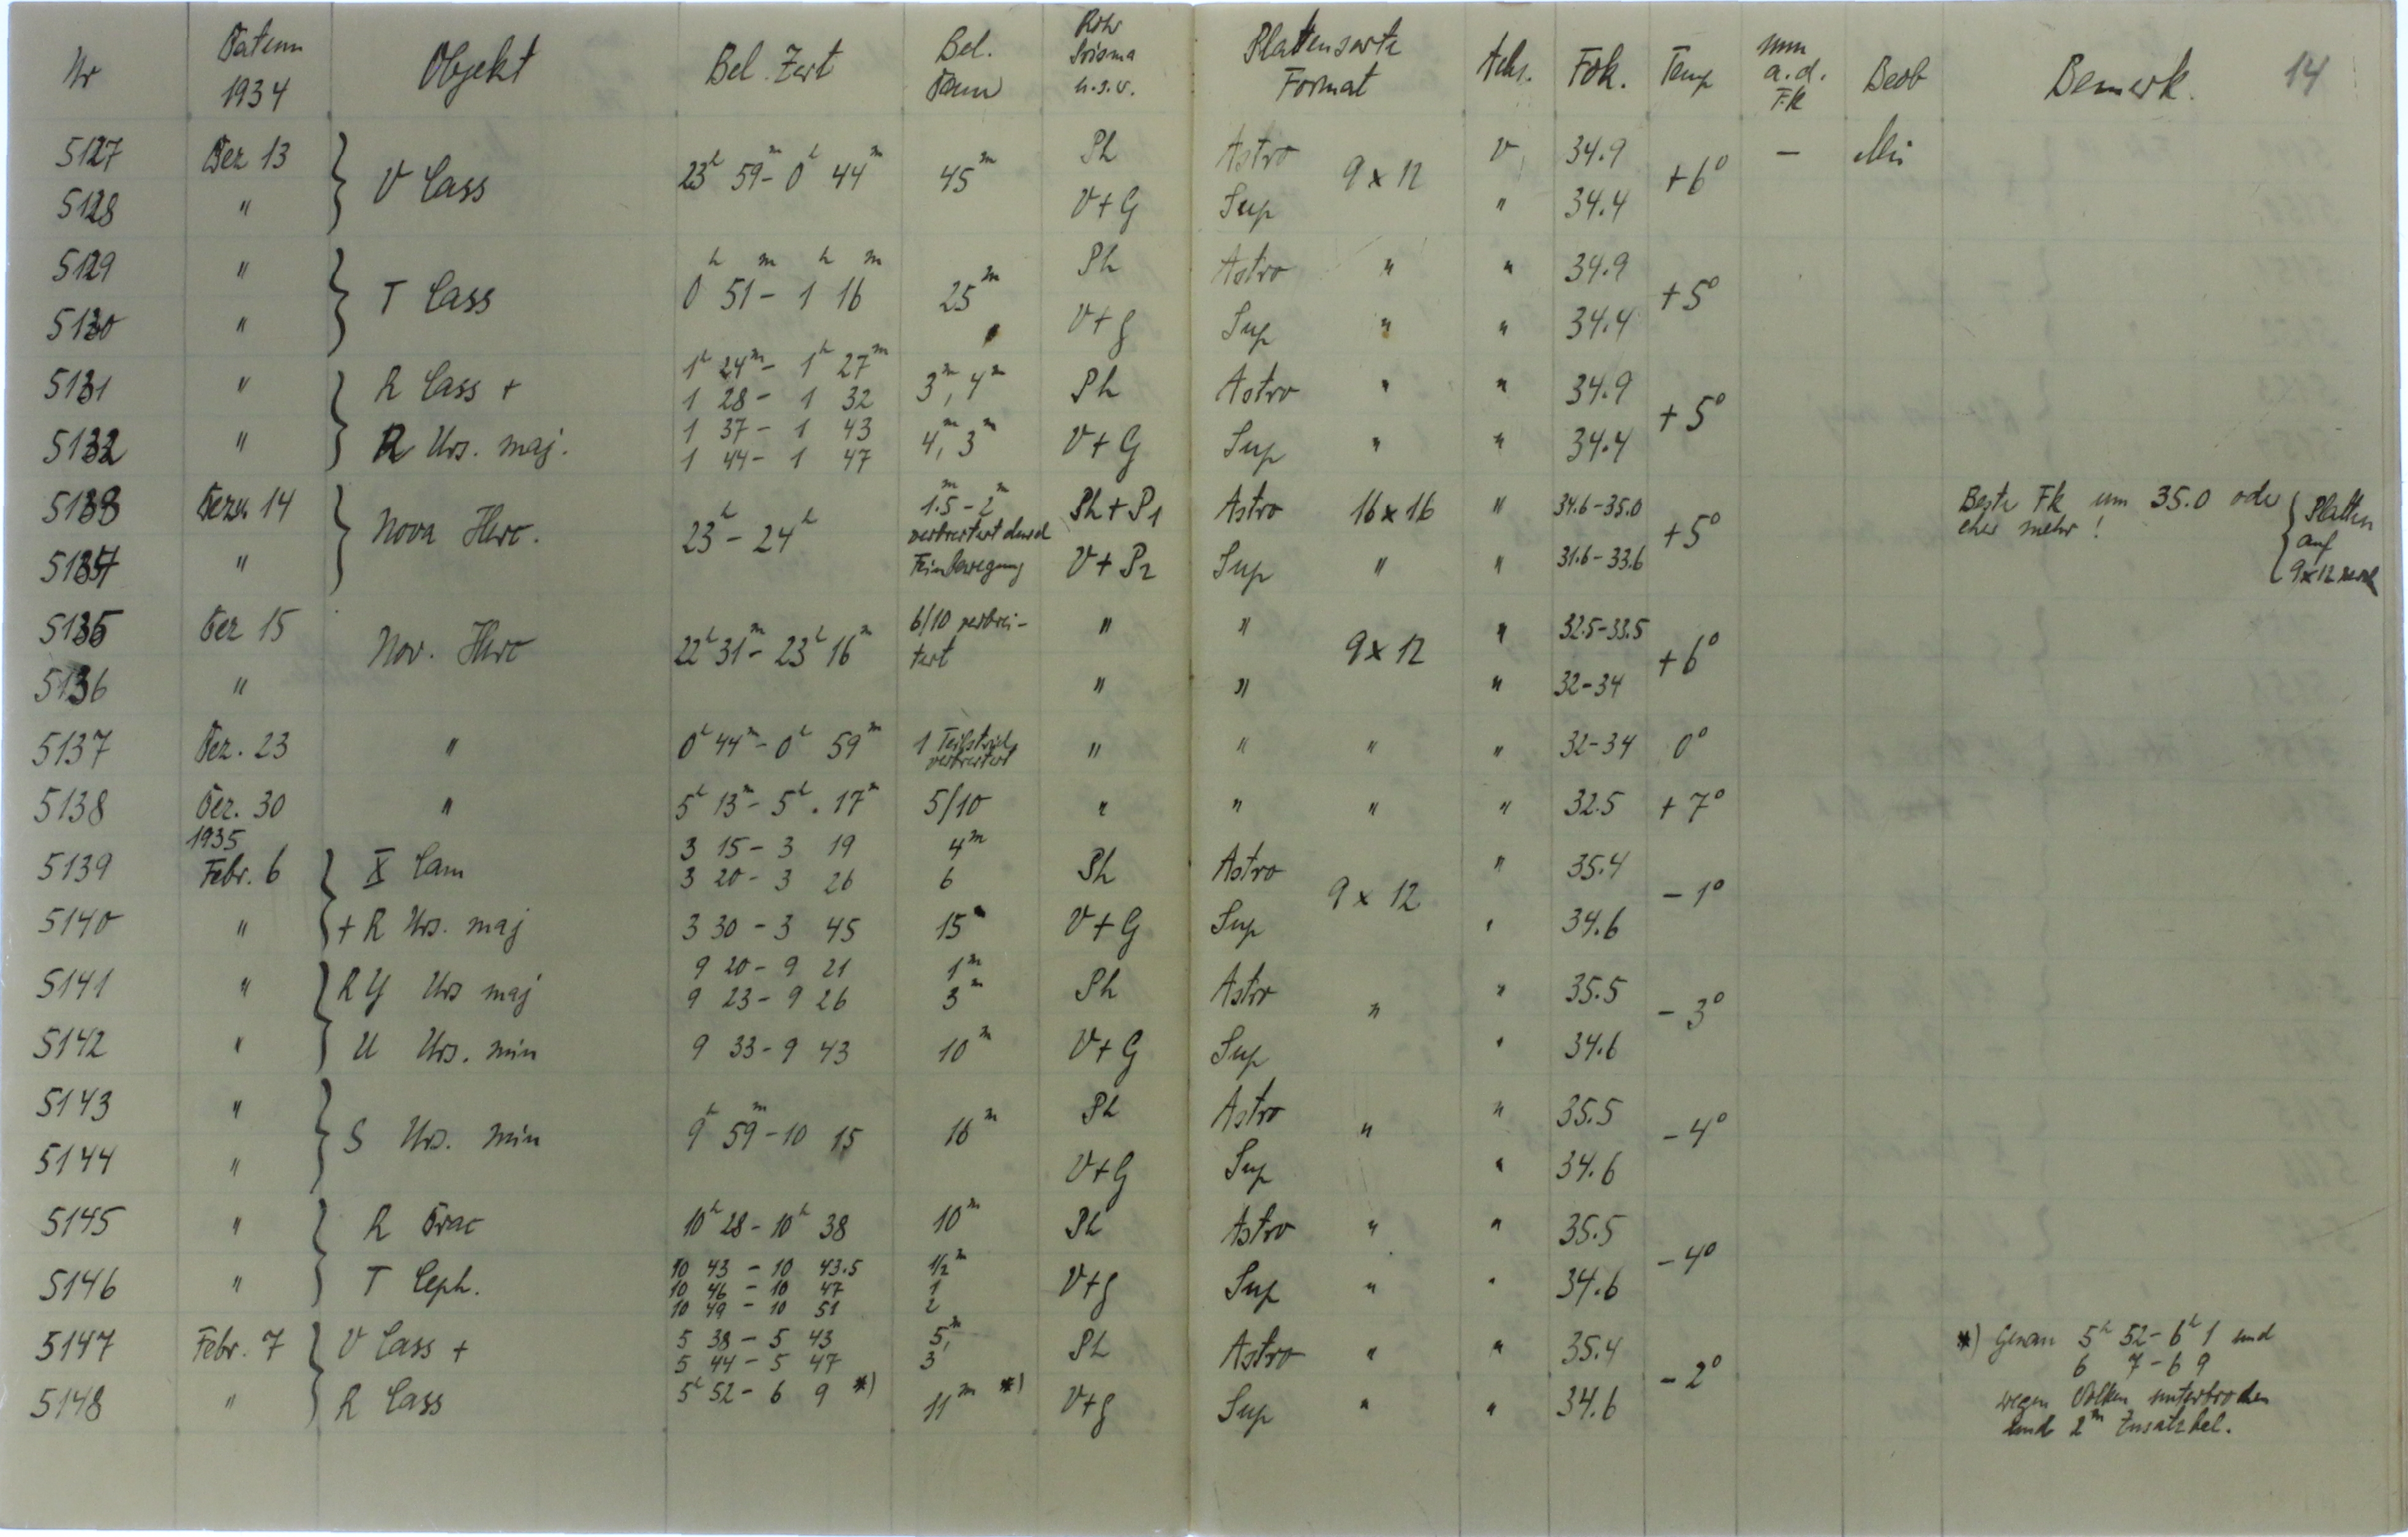 Nr Datum 1934 Objekt Bel. Zeit Bel. Dauer Rohr Prisma u.s.w. Plattensorte Format Achs. Fok. Temp mm a.d. FK Beob Bemerk. 14
5127 Dez 13 } V Cass 23h 59m - 0h 44m 45m Ph Astro 9 x 12 V 34.9 +6° — Mü
5128 " V+G Sup " 34.4
5129 " } T Cass 0h 51m - 1h 16m 25m Ph Astro " " 34.9 +5°
5130 " V+G Sup " " 34.4
5131 " } R Cass + 1h 24m - 1h 27m 3m, 4m Ph Astro " " 34.9 +5°
1 28 - 1 32
5132 " R Urs. maj. 1 37 - 1 43 4m, 3m V+G Sup " " 34.4
1 44 - 1 47
5133 Dez 14 } Nova Herc. 23h - 24h 1.5m - 2m verbreitert durch Feinbewegung Ph + P1 Astro 16 x 16 " 34.6-35.0 +5° Beste FK um 35.0 oder eher mehr! { Platten auf 9x12
5134 " V + P2 Sup " " 31.6-33.6
5135 Dez 15 Nov. Herc 22h 31m - 23h 16m 6/10 verbrei- " " 9 x 12 " 32.5-33.5 +6°
tert
5136 " " " " 32-34
5137 Dez. 23 " 0h 44m - 0h 59m 1 Teilstrich verbreitert " " " " 32-34 0°
5138 Dez. 30 " 5h 13m - 5h . 17m 5/10 " " " " 32.5 +7°
1935
5139 Febr. 6 } X Cam 3 15 - 3 19 4m Ph Astro 9 x 12 " 35.4 -1°
3 20 - 3 26 6
5140 " + R Urs. maj 3 30 - 3 45 15m V+G Sup " 34.6
5141 " } RY Urs maj 9 20 - 9 21 1m Ph Astro " " 35.5 -3°
9 23 - 9 26 3m
5142 " U Urs. min 9 33 - 9 43 10m V+G Sup " 34.6
5143 " } S Urs. min 9h 59m - 10 15 16m Ph Astro " " 35.5 -4°
5144 " V+G Sup " 34.6
5145 " } R Drac 10h 28 - 10h 38 10m Ph Astro " " 35.5 -4°
5146 " T Ceph. 10 43 - 10 43.5 1/2m V+G Sup " " 34.6
10 46 - 10 47 1
10 49 - 10 51 2
5147 Febr. 7 } V Cass + 5 38 - 5 43 5m, Ph Astro " " 35.4 -2° *) Genau 5h 52 - 6h 1 und
5 44 - 5 47 3 6 7 - 6 9
5148 " R Cass 5h 52 - 6 9 *) 11m *) V+G Sup " " 34.6 wegen Wolken unterbrochen
und 2m Zusatzbel.